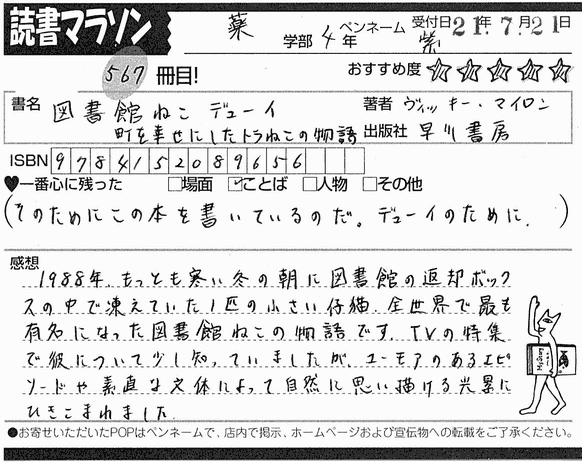 読書マラソン
薬 学部 4 年 ペンネーム 紫 受付日 21年 7月21日
567 冊目!
おすすめ度 ☆☆☆☆☆
書名 図書館ねこ デューイ 著者 ヴィッキー・マイロン
町を幸せにしたトラねこの物語 出版社 早川書房
ISBN 9784152089656
♥一番心に残った □場面 ☑ことば □人物 □その他
(そのためにこの本を書いているのだ。デューイのために.)
感想
1988年、もっとも寒い冬の朝に図書館の返却ボック
スの中で凍えていた1匹の小さい仔猫.全世界で最も
有名になった図書館ねこの物語です.TVの特集
で彼について少し知っていましたが、ユーモアのあるエピ
ソードや素直な文体によって自然に思い描ける光景に
ひきこまれました.
●お寄せいただいたPOPはペンネームで、店内で掲示、ホームページおよび宣伝物への転載をご了承ください。